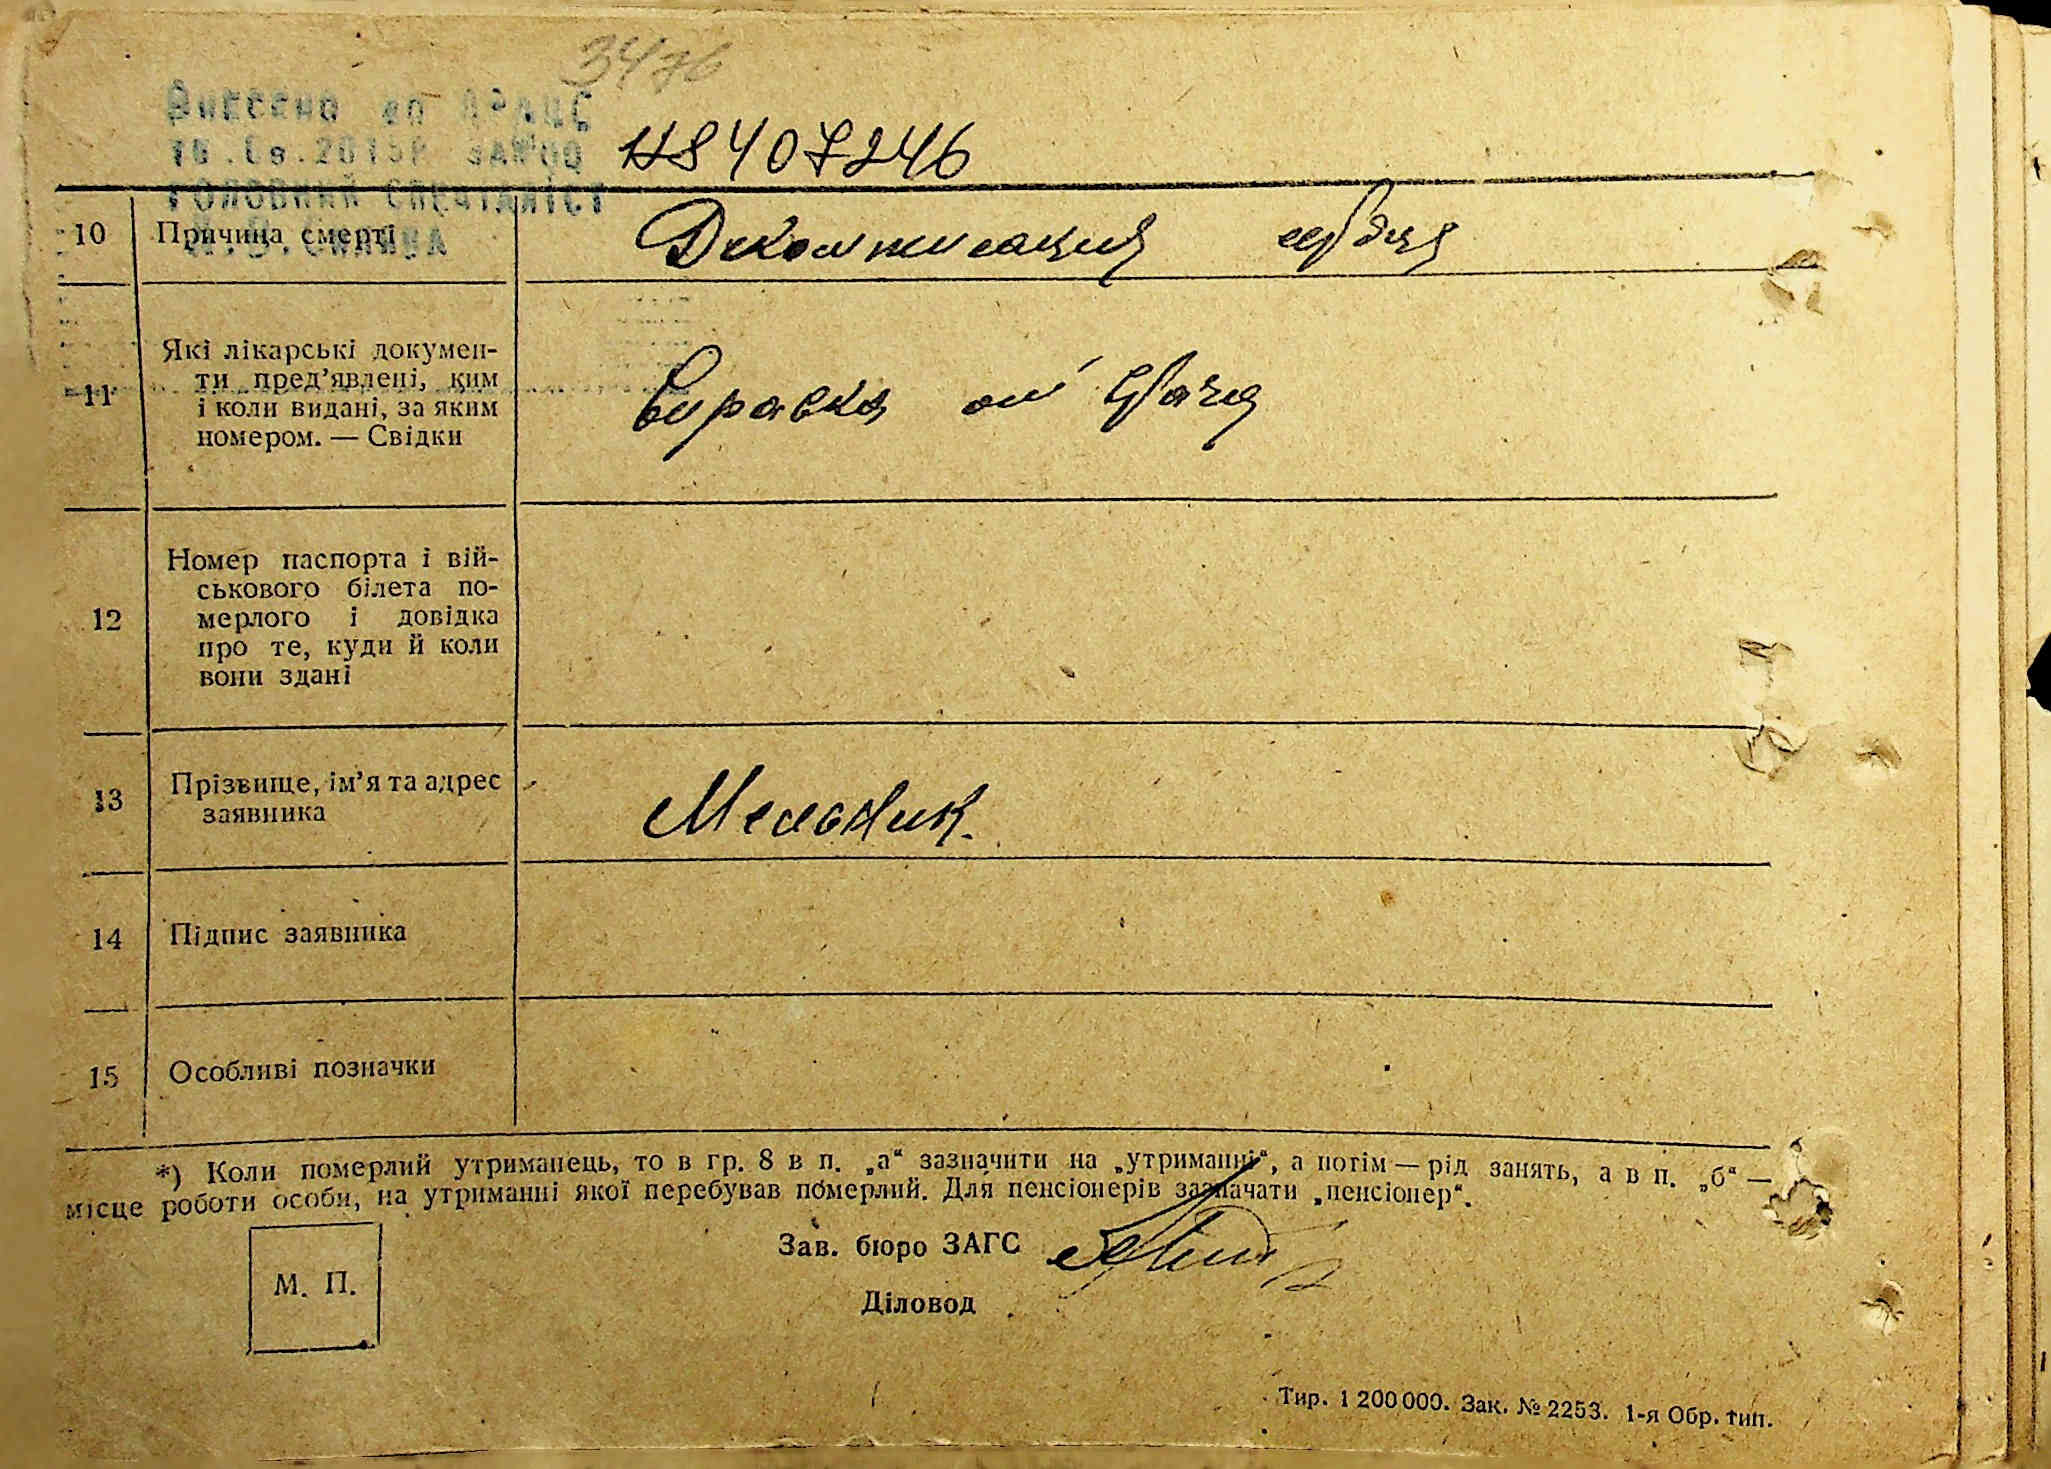 3476
Внесено до ДРАЦС
ГОЛОВНИЙ СПЕЦІАЛІСТ
8407246
10 Причина смерті Декомпенсация сердця
11 Які лікарські докумен-
ти пред’явлені, ким
і коли видані, за яким
номером. — Свідки
Справка от врача
12 Номер паспорта і вій-
ськового білета по-
мерлого і довідка
про те, куди й коли
вони здані
13 Прізвище, ім’я та адрес
заявника
Мельник.
14 Підпис заявника
15 Особливі позначки
*) Коли померлий утриманець, то в гр. 8 в п. „а“ зазначити на „утриманні“, а потім — рід занять, а в п. „б“ —
місце роботи особи, на утриманні якої перебував померлий. Для пенсіонерів зазначати „пенсіонер“.
Зав. бюро ЗАГС
М. П.
Діловод
Тир. 1 200 000. Зак. № 2253. 1-я Обр. тип.